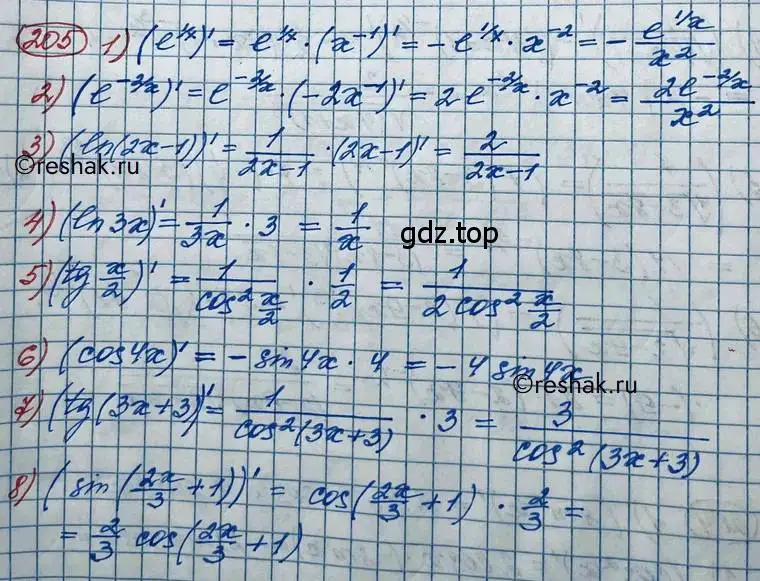 205 1) (e^{1/x})' = e^{1/x} · (x^{-1})' = -e^{1/x} · x^{-2} = - \frac{e^{1/x}}{x^2}
2) (e^{-2/x})' = e^{-2/x} · (-2x^{-1})' = 2e^{-2/x} · x^{-2} = \frac{2e^{-2/x}}{x^2}
3) (ln(2x-1))' = \frac{1}{2x-1} · (2x-1)' = \frac{2}{2x-1}
©reshak.ru
4) (ln 3x)' = \frac{1}{3x} · 3 = \frac{1}{x}
gdz.top
5) (tg \frac{x}{2})' = \frac{1}{cos^2 \frac{x}{2}} · \frac{1}{2} = \frac{1}{2 cos^2 \frac{x}{2}}
6) (cos 4x)' = - sin 4x · 4 = - 4 sin 4x
©reshak.ru
7) (tg (3x+3))' = \frac{1}{cos^2 (3x+3)} · 3 = \frac{3}{cos^2 (3x+3)}
8) (sin (\frac{2x}{3} + 1))' = cos(\frac{2x}{3} + 1) · \frac{2}{3} =
= \frac{2}{3} cos(\frac{2x}{3} + 1)